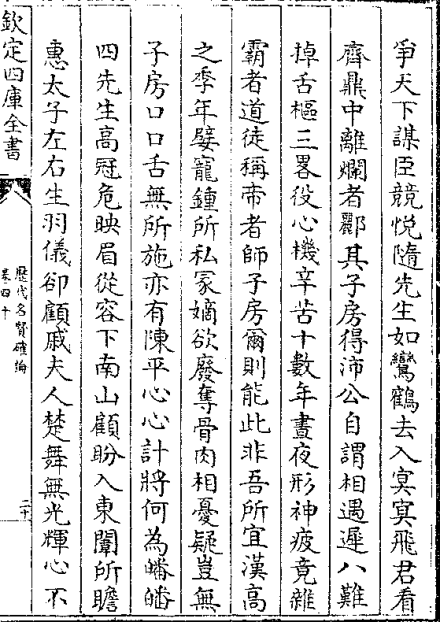 爭天下謀臣競悅隨先生如鸞鶴去入冥冥飛君看
齊鼎中離爛者酈其子房得沛公自謂相遇遲八難
掉舌樞三畧役心機辛苦十數年晝夜形神疲竟雜
霸者道徒稱帝者師子房爾則能此非吾所宜漢高
之季年嬖寵鍾所私冢嫡欲廢奪骨肉相憂疑豈無
子房口口舌無所施亦有陳平心心計將何為皤皤
四先生高冠危映眉從容下南山顧盼入東闈所瞻
惠太子左右生羽儀卻顧戚夫人楚舞無光輝心不
欽定四庫全書
歷代名賢確論
卷四十
二十